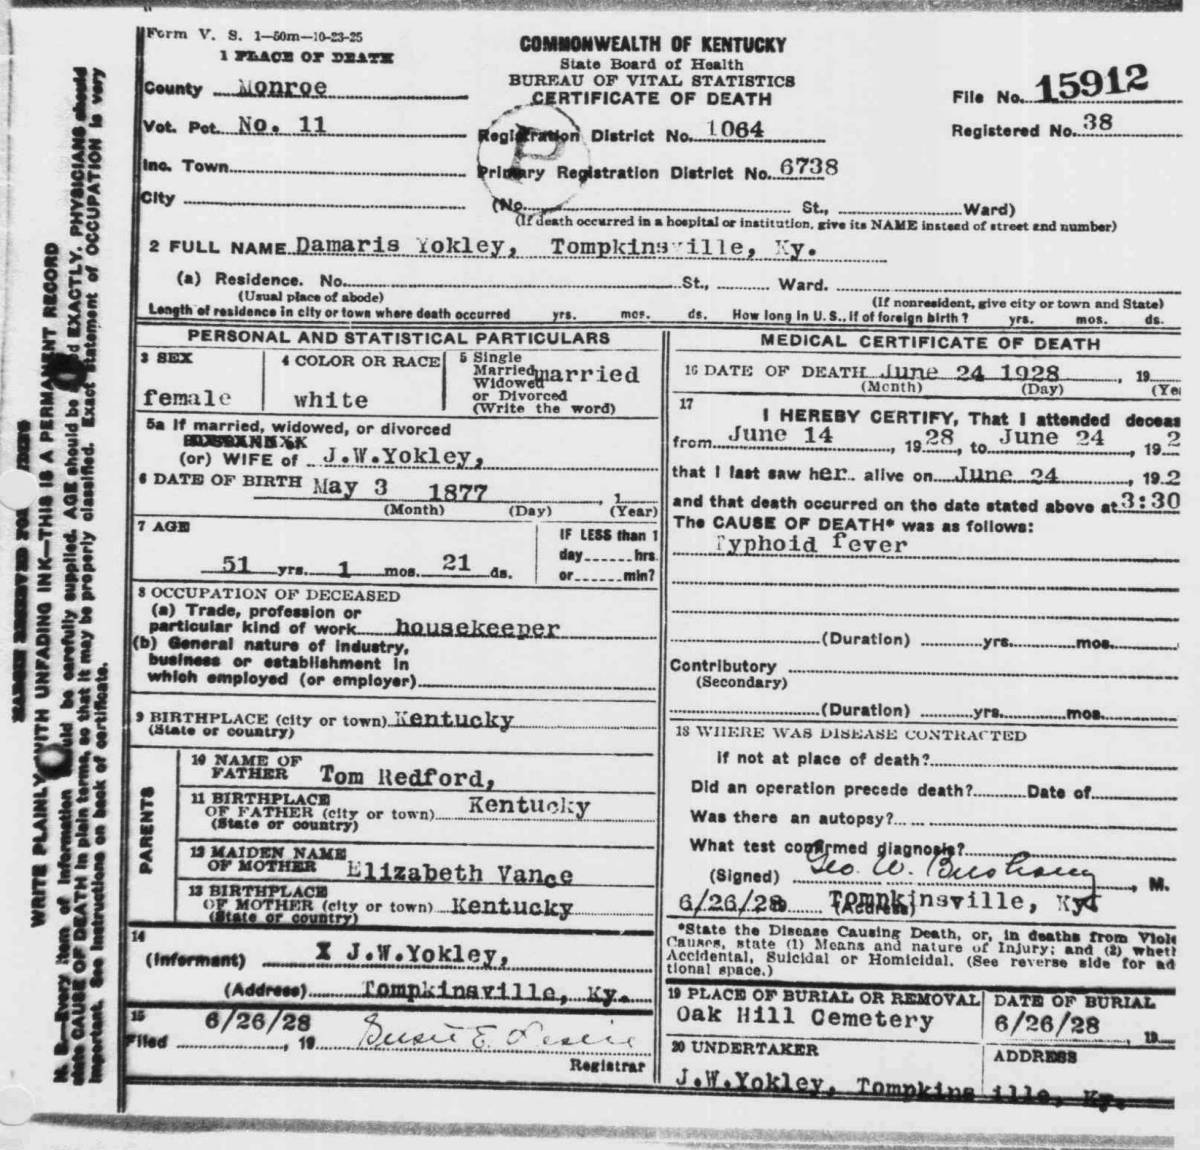 Form V. S. 1—50m—10-23-25
1 PLACE OF DEATH
County Monroe
Vot. Pct. No. 11
Inc. Town
City
COMMONWEALTH OF KENTUCKY
State Board of Health
BUREAU OF VITAL STATISTICS
CERTIFICATE OF DEATH
File No. 15912
Registered No. 38
Registration District No. 1064
Primary Registration District No. 6738
P
(No. St., Ward)
(If death occurred in a hospital or institution, give its NAME instead of street and number)
2 FULL NAME Damaris Yokley, Tompkinsville, Ky.
(a) Residence. No. St., Ward.
(Usual place of abode) (If nonresident, give city or town and State)
Length of residence in city or town where death occurred yrs. mos. ds. How long in U. S., if of foreign birth? yrs. mos. ds.
PERSONAL AND STATISTICAL PARTICULARS
3 SEX
female
4 COLOR OR RACE
white
5 Single
Married
Widowed
or Divorced
(Write the word)
married
5a If married, widowed, or divorced
(or) WIFE of J.W.Yokley,
6 DATE OF BIRTH May 3 1877 , 1
(Month) (Day) (Year)
7 AGE
51 yrs. 1 mos. 21 ds.
IF LESS than 1
day hrs
or min?
8 OCCUPATION OF DECEASED
(a) Trade, profession or
particular kind of work housekeeper
(b) General nature of industry,
business or establishment in
which employed (or employer)
9 BIRTHPLACE (city or town) Kentucky
(State or country)
PARENTS
10 NAME OF
FATHER Tom Redford,
11 BIRTHPLACE
OF FATHER (city or town) Kentucky
(State or country)
12 MAIDEN NAME
OF MOTHER Elizabeth Vance
13 BIRTHPLACE
OF MOTHER (city or town) Kentucky
(State or country)
14
(Informant) X J.W.Yokley,
(Address) Tompkinsville, Ky.
15
Filed 6/26/28 , 19
Registrar
MEDICAL CERTIFICATE OF DEATH
16 DATE OF DEATH June 24 1928 , 19
(Month) (Day) (Yea
17
I HEREBY CERTIFY, That I attended deceas
from June 14 , 1928, to June 24 , 192
that I last saw her alive on June 24 , 192
and that death occurred on the date stated above at 3:30
The CAUSE OF DEATH* was as follows:
Typhoid fever
(Duration) yrs. mos.
Contributory
(Secondary)
(Duration) yrs. mos.
18 WHERE WAS DISEASE CONTRACTED
if not at place of death?
Did an operation precede death? Date of
Was there an autopsy?
What test confirmed diagnosis?
(Signed) Geo. W. Bushong , M.
6/26/28 19 (Address) Tompkinsville, Ky
*State the Disease Causing Death, or, in deaths from Viole
Causes, state (1) Means and nature of Injury; and (2) wheth
Accidental, Suicidal or Homicidal. (See reverse side for ad
tional space.)
19 PLACE OF BURIAL OR REMOVAL
Oak Hill Cemetery
DATE OF BURIAL
6/26/28 , 19
20 UNDERTAKER
ADDRESS
J.W.Yokley, Tompkins ille, Ky.
WRITE PLAINLY WITH UNFADING INK—THIS IS A PERMANENT RECORD
N. B.—Every item of information should be carefully supplied. AGE should be EXACTLY. PHYSICIANS should
state CAUSE OF DEATH in plain terms, so that it may be properly classified. Exact statement of OCCUPATION is very
important. See instructions on back of certificate.